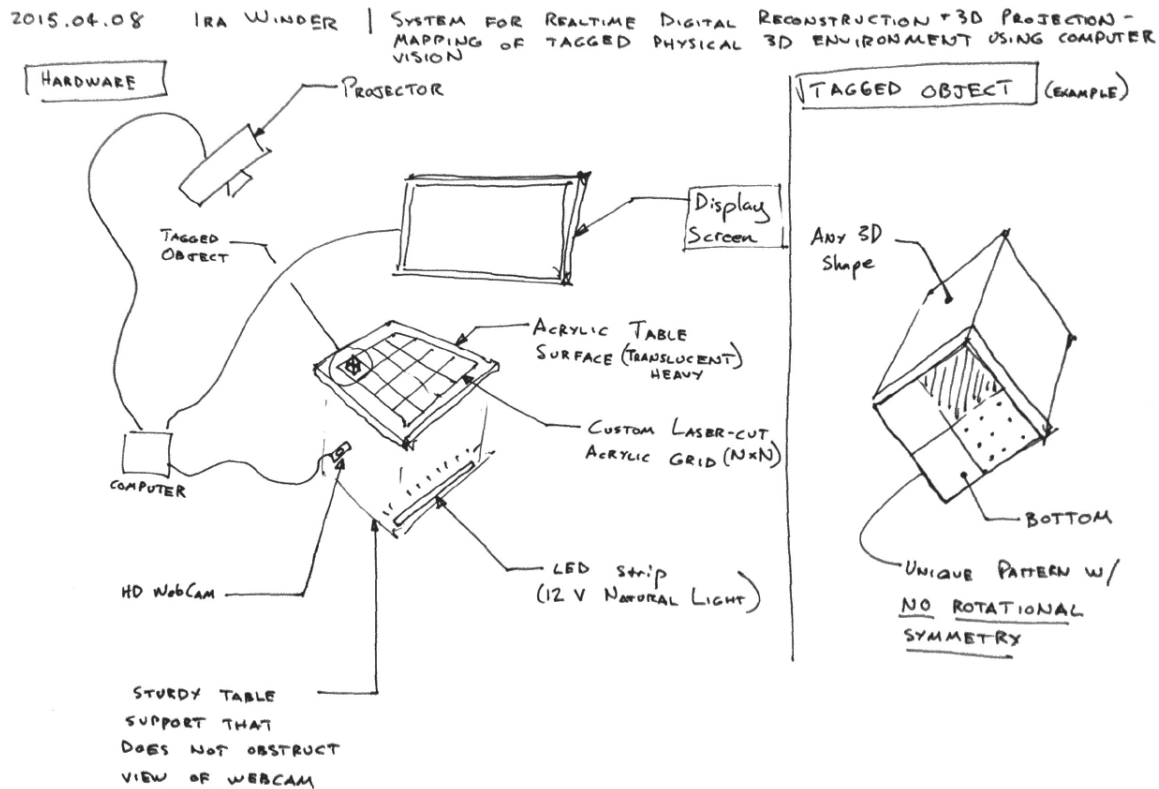 2015.04.08 IRA WINDER | SYSTEM FOR REALTIME DIGITAL RECONSTRUCTION + 3D PROJECTION-
MAPPING OF TAGGED PHYSICAL 3D ENVIRONMENT USING COMPUTER
VISION
HARDWARE
PROJECTOR
TAGGED
OBJECT
Display
Screen
ACRYLIC TABLE
SURFACE (TRANSLUCENT)
HEAVY
CUSTOM LASER-CUT
ACRYLIC GRID (N×N)
COMPUTER
HD WebCam
LED Strip
(12 V NATURAL LIGHT)
STURDY TABLE
SUPPORT THAT
DOES NOT OBSTRUCT
VIEW OF WEBCAM
TAGGED OBJECT (EXAMPLE)
ANY 3D
Shape
BOTTOM
UNIQUE PATTERN W/
NO ROTATIONAL
SYMMETRY